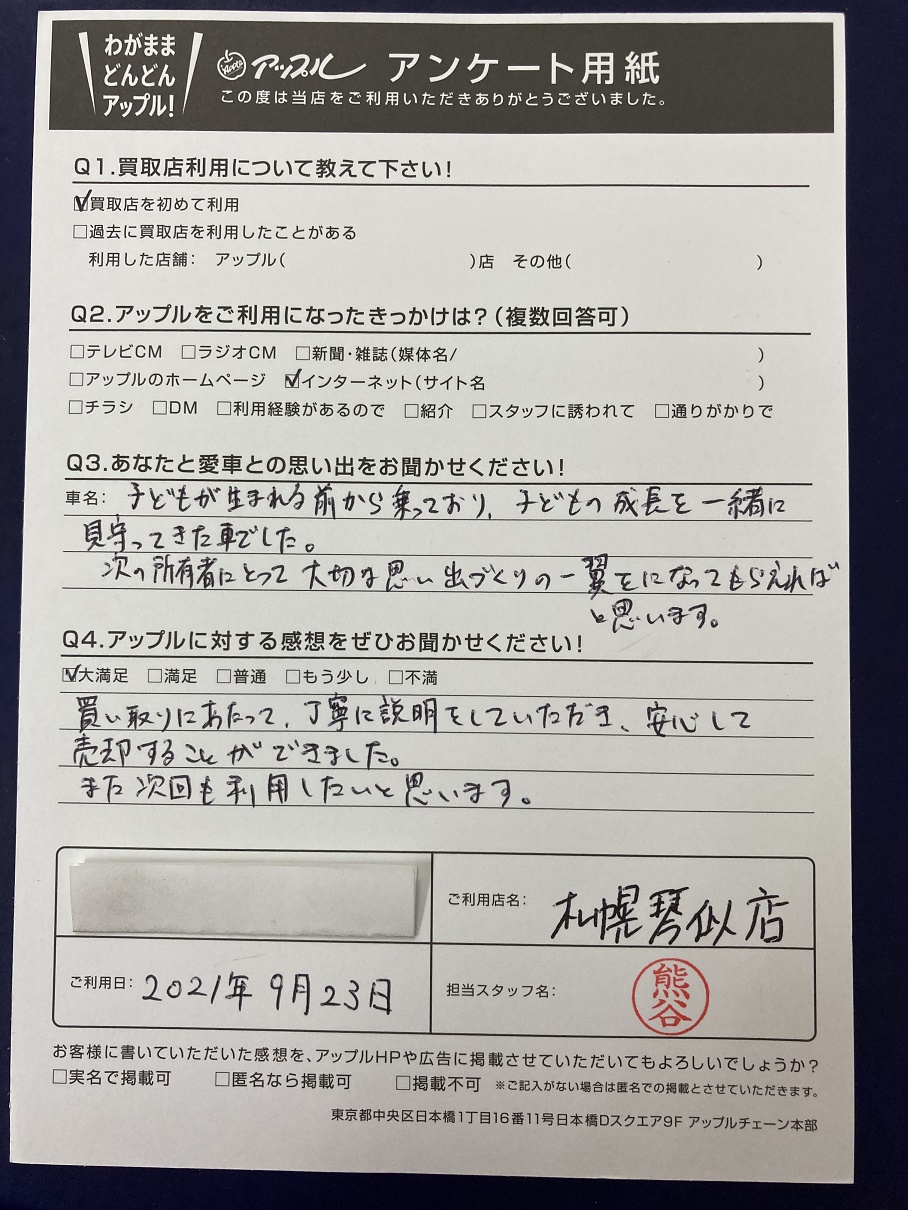 わがまま
どんどん
アップル!
Apple アップル アンケート用紙
この度は当店をご利用いただきありがとうございました。
Q1.買取店利用について教えて下さい!
☑買取店を初めて利用
□過去に買取店を利用したことがある
利用した店舗: アップル( )店 その他( )
Q2.アップルをご利用になったきっかけは?(複数回答可)
□テレビCM □ラジオCM □新聞・雑誌(媒体名/ )
□アップルのホームページ ☑インターネット(サイト名 )
□チラシ □DM □利用経験があるので □紹介 □スタッフに誘われて □通りがかりで
Q3.あなたと愛車との思い出をお聞かせください!
車名: 子どもが生まれる前から乗っており、子どもの成長を一緒に
見守ってきた車でした。
次の所有者にとって大切な思い出づくりの一翼をになってもらえれば
と思います。
Q4.アップルに対する感想をぜひお聞かせください!
☑大満足 □満足 □普通 □もう少し □不満
買い取りにあたって、丁寧に説明をしていただき、安心して
売却することができました。
また次回も利用したいと思います。
ご利用店名: 札幌琴似店
ご利用日: 2021年9月23日
担当スタッフ名: 熊谷
お客様に書いていただいた感想を、アップルHPや広告に掲載させていただいてもよろしいでしょうか?
□実名で掲載可 □匿名なら掲載可 □掲載不可 ※ご記入がない場合は匿名での掲載とさせていただきます。
東京都中央区日本橋1丁目16番11号日本橋Dスクエア9F アップルチェーン本部